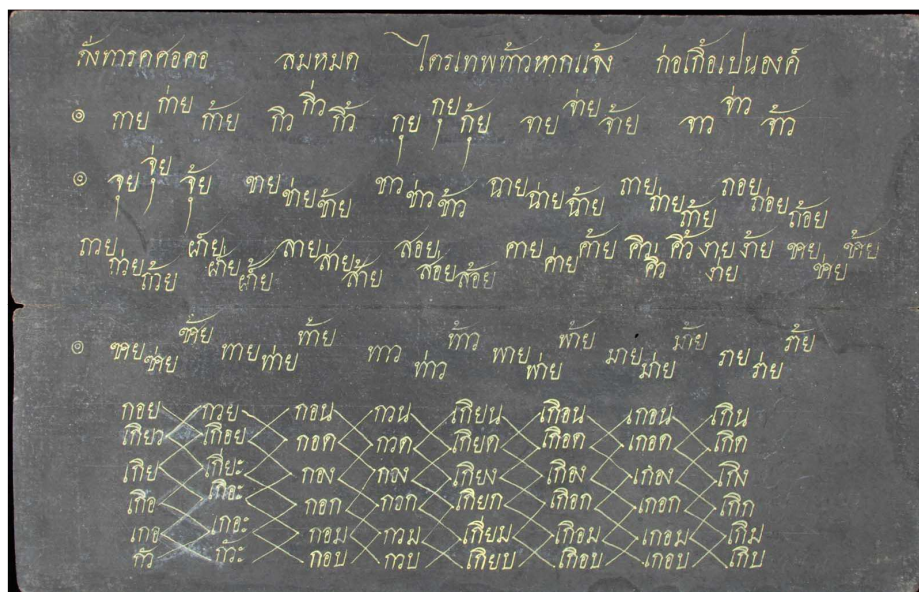 กาย ก่าย ก้าย กิว กิ่ว กิ้ว กุย กุ่ย กุ้ย จาย จ่าย จ้าย จาว จ่าว จ้าว
จุย จุ่ย จุ้ย ชาย ช่าย ช้าย ชาว ช่าว ช้าว ฉาย ฉ่าย ฉ้าย ถาย ถ่าย ถ้าย ถอย ถ่อย ถ้อย
ถวย ถ่วย ถ้วย ผาย ผ่าย ผ้าย สาย ส่าย ส้าย สอย ส่อย ส้อย คาย ค่าย ค้าย คิว คิ่ว คิ้ว งาย ง่าย ง้าย
ทาย ท่าย ท้าย ทาว ท่าว ท้าว พาย พ่าย พ้าย มาย ม่าย ม้าย ราย ร่าย ร้าย
กอย กวย กอน กวน เกียน เกือน เกอน เกิน
เกียว เกือย กอด กวด เกียด เกือด เกอด เกิด
เกีย เกียะ กอง กวง เกียง เกือง เกอง เกิง
เกือ เกือะ กอก กวก เกียก เกือก เกอก เกิก
เกอ เกอะ กอม กวม เกียม เกือม เกอม เกิม
กัว กัวะ กอบ กวบ เกียบ เกือบ เกอบ เกิบ